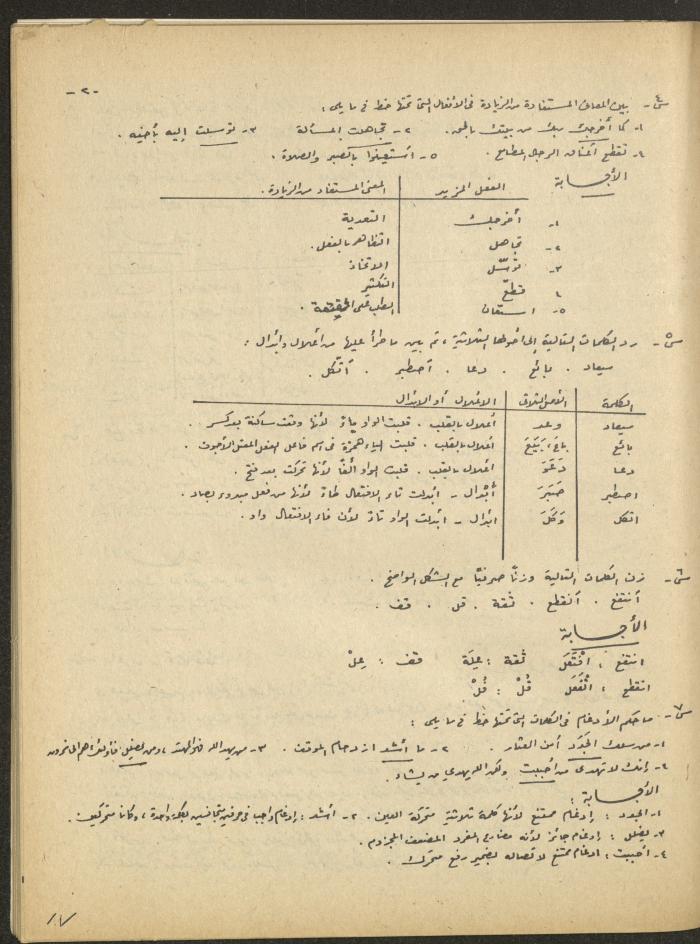 -٢-
س٤- بين المعاني المستفادة من الزيادة في الأفعال التي تحتها خط في ما يلي :
١- كما أخرجك ربك من بيتك بالحق. ٢- تجاهلت المسألة ٣- توسلت إليه بأخيه .
٤- تقطع أعناق الرجال المطامع . ٥- استعينوا بالصبر والصلاة .
الأجابة
الفعل المزيد المعنى المستفاد من الزيادة .
١- أخرجك التعدية
٢- تجاهل التظاهر بالفعل.
٣- توسّل الاتخاذ
٤ قطّع التكثير
٥- استعان الطلب على الحقيقة .
س٥- رد الكلمات التالية إلى أصولها الثلاثية ، ثم بين ما طرأ عليها من أعلال وابدال :
ميعاد . بائع . دعا . اصطبر . اتّكل .
الكلمة الأصل الثلاثي الاعلال أو الابدال
ميعاد وعد أعلال بالقلب . قلبت الواو ياءً لأنها وقعت ساكنة بعد كسر .
بائع باع، بَيَعَ اعلال بالقلب . قلبت الياء همزة في اسم فاعل الفعل المعتل الأجوف .
دعا دَعَوَ اعلال بالقلب . قلبت الواو ألفًا لأنها تحركت بعد فتح .
اصطبر صَبَرَ أبدال - أبدلت تاء الافتعال طاءً لأنها من فعل مبدوء بصاد .
اتكل وَكَلَ ابدال - ابدلت الواو تاءً لأن فاء الافتعال واو .
س٦- زن الكلمات التالية وزنًا صرفيًا مع الشكل الواضح .
أنتفع . أنقطع . ثقة . قل . قف .
الأجابة
انتفع : افْتَعَلَ ثقة : عِلَة قف : عِلْ
انقطع : انْفَعَلَ قُلْ : فُلْ
س٧- ما حكم الأدغام في الكلمات التي تحتها خط في ما يلي :
١- من سلك الجَدَد أمن العثار . ٢- ما أشد ازدحام الموقف . ٣- من يهد الله فهو المهتد ، ومن يضلل فأولئك هم الخاسرون
٤- إنك لا تهدي من أحببت ولكن الله يهدي من يشاء .
الأجابة :
١- الجدد : إدغام ممتنع لأنها كلمة ثلاثية متحركة العين . ٢- أشد : إدغام واجب في حرفين متجانسين بكلمة واحدة ، وكانا متحركين .
٣- يضلل : إدغام جائز لأنه مضارع المفرد المضعف المجزوم .
٤- أحببت : ادغام ممتنع لاتصاله بضمير رفع متحرك .
١٧